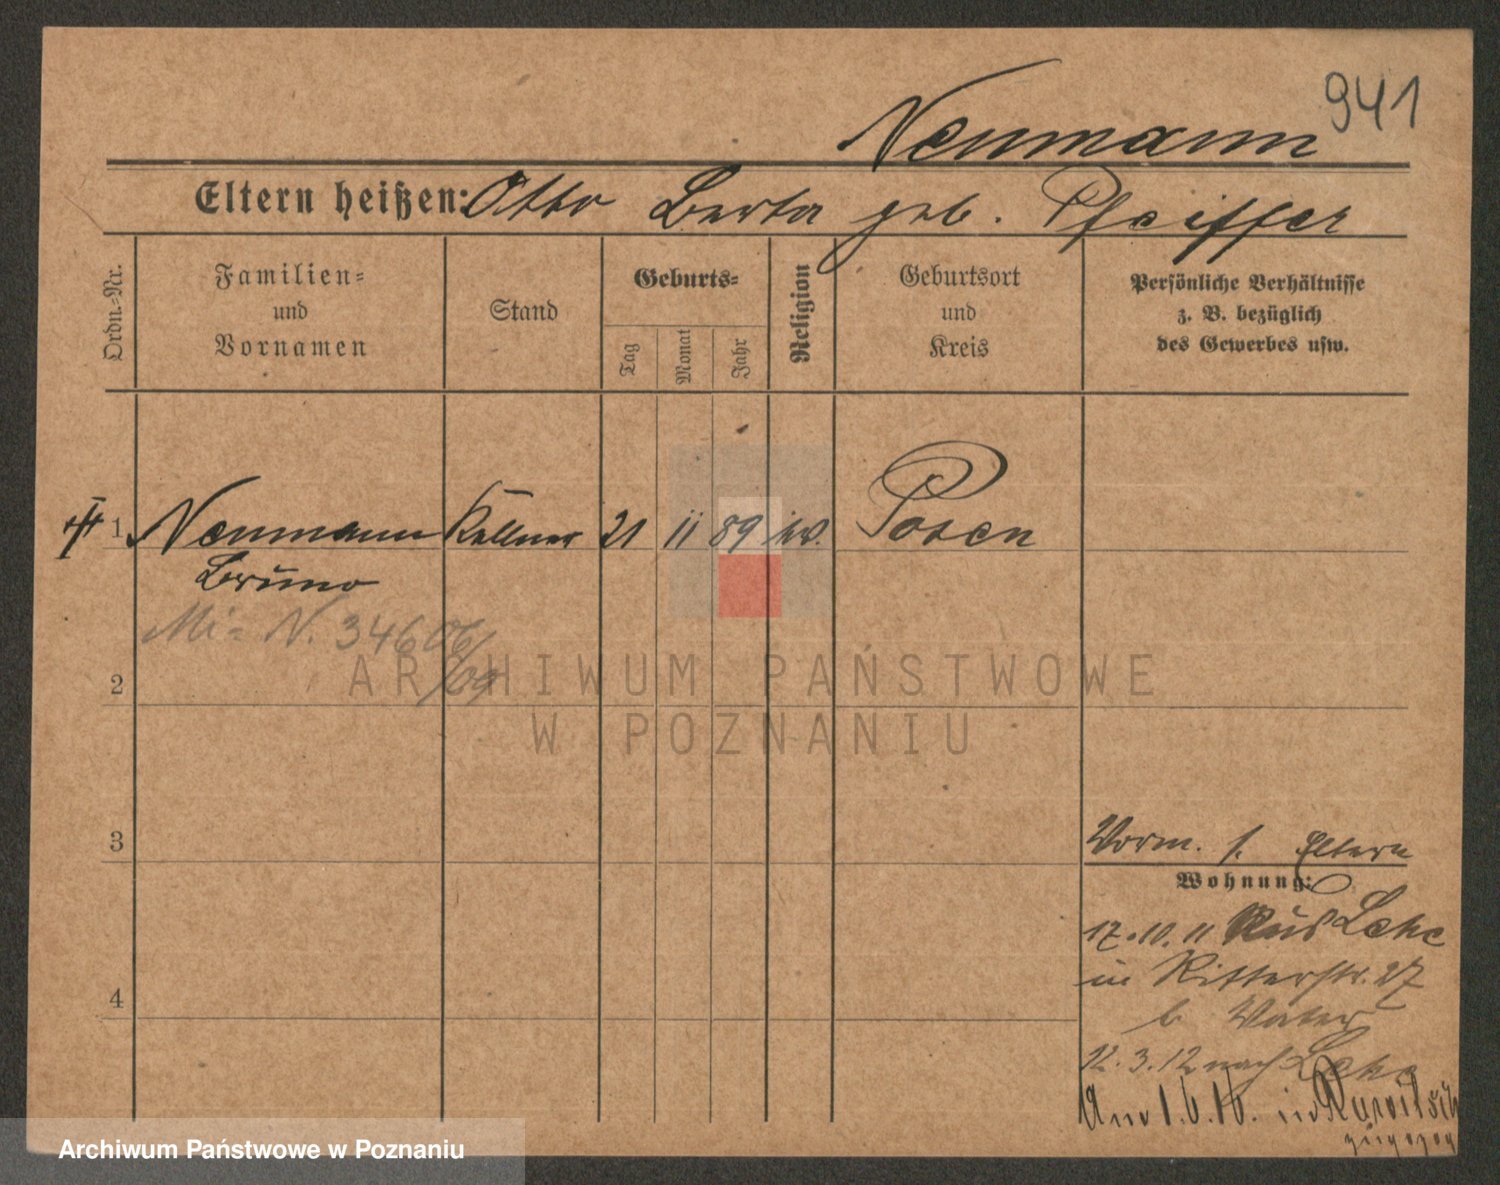 941
Neumann
Eltern heißen: Otto Berta geb. Pfeiffer
Ordn.-Nr.
Familien- und Vornamen
Stand
Geburts-
Tag
Monat
Jahr
Religion
Geburtsort und Kreis
Persönliche Verhältnisse z. B. bezüglich des Gewerbes usw.
1 Neumann Kellner 21 11 89 Posen
Bruno
Mi= N. 34606/
/09
2
ARCHIWUM PAŃSTWOWE
W POZNANIU
3
Vorm. s. Eltern
Wohnung:
17.10.11 aus
in Ritterstr. 27
b Vater
4
12.3.12 nach
Am 1.6.16. in
zugezogen
Archiwum Państwowe w Poznaniu